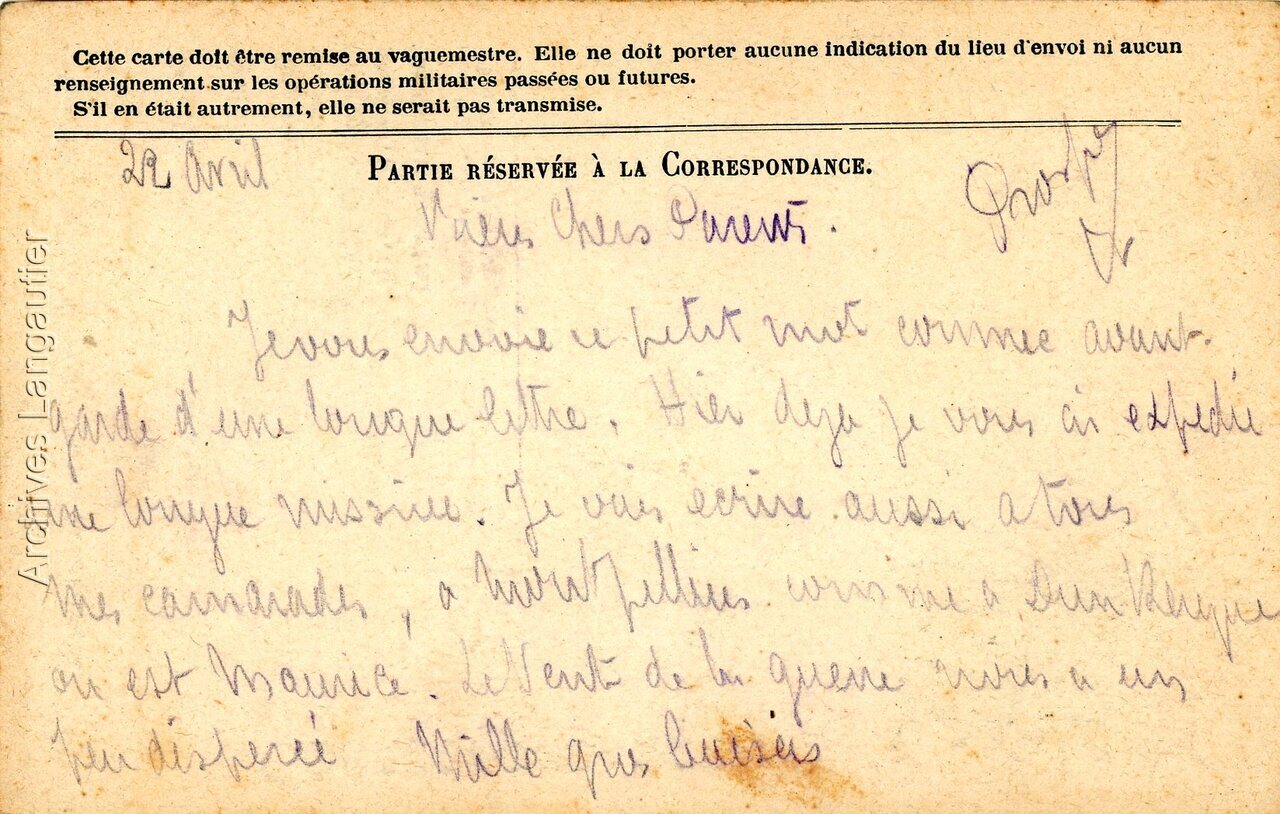 Cette carte doit être remise au vaguemestre. Elle ne doit porter aucune indication du lieu d'envoi ni aucun
renseignement sur les opérations militaires passées ou futures.
S'il en était autrement, elle ne serait pas transmise.
22 Avril
PARTIE RÉSERVÉE À LA CORRESPONDANCE.
Chers Parents.
Je vous envoie ce petit mot comme avant-
garde d'une longue lettre. Hier deja je vous ai expedié
une longue missive. Je vais ecrire aussi a tous
mes camarades, a Montpellier comme a Dunkerque
ou est Maurice. Le Vent de la guerre nous a un
peu dispercé Mille gros baisers
Archives Langautier